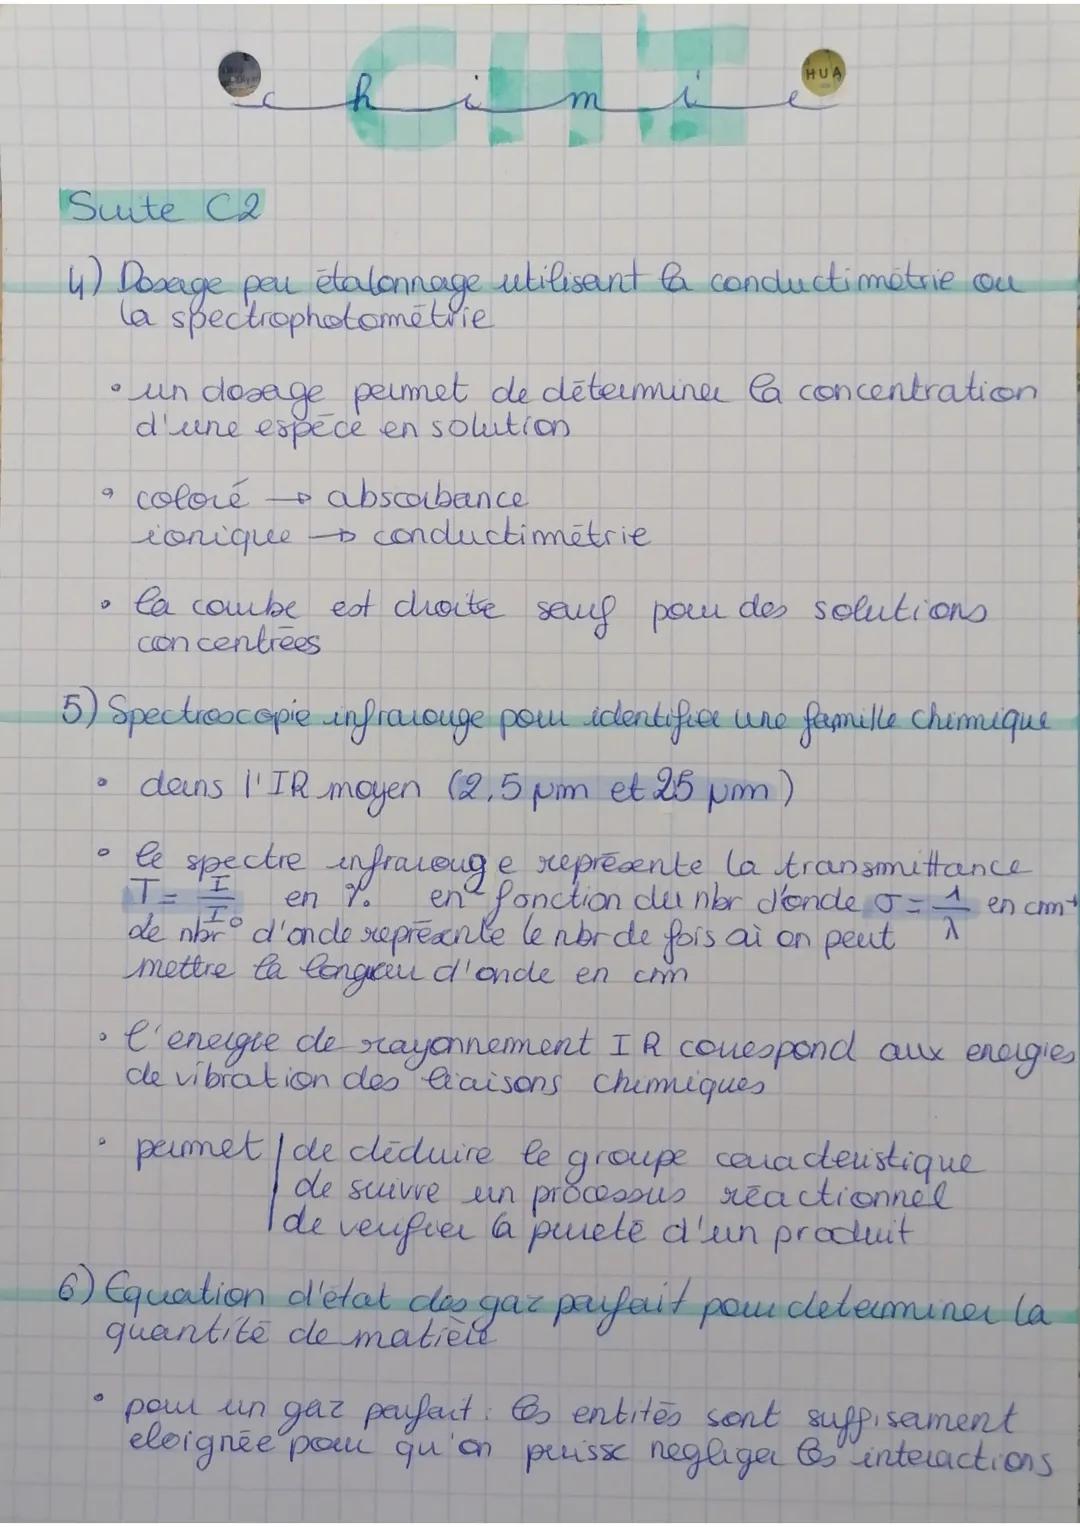 CHI
chimie
HUA
Suite C2
4) Dosage par étalonnage utilisant la conductimétrie ou
la spectrophotométrie
• un dosage permet de déterminer la concentration
d'une espèce en solution
• coloré → absorbance
ionique → conductimétrie
• la courbe est droite sauf pour des solutions
concentrées
5) Spectroscopie infrarouge pour identifier une famille chimique
• dans l'IR moyen (2,5 µm et 25 µm)
• le spectre infrarouge représente la transmittance
T = I/I₀ en % en fonction du nbr d'onde σ = 1/λ en cm⁻¹
de nbr d'onde représente le nbr de fois où on peut
mettre la longueur d'onde en cm
• l'energie de rayonnement IR correspond aux energies
de vibration des liaisons chimiques
• permet | de déduire le groupe caracteristique
de suivre un processus réactionnel
de verifier la pureté d'un produit
6) Equation d'état des gaz parfait pour determiner la
quantité de matière
• pour un gaz parfait : les entités sont suffisament
eloignée pour qu'on puisse negliger les interactions